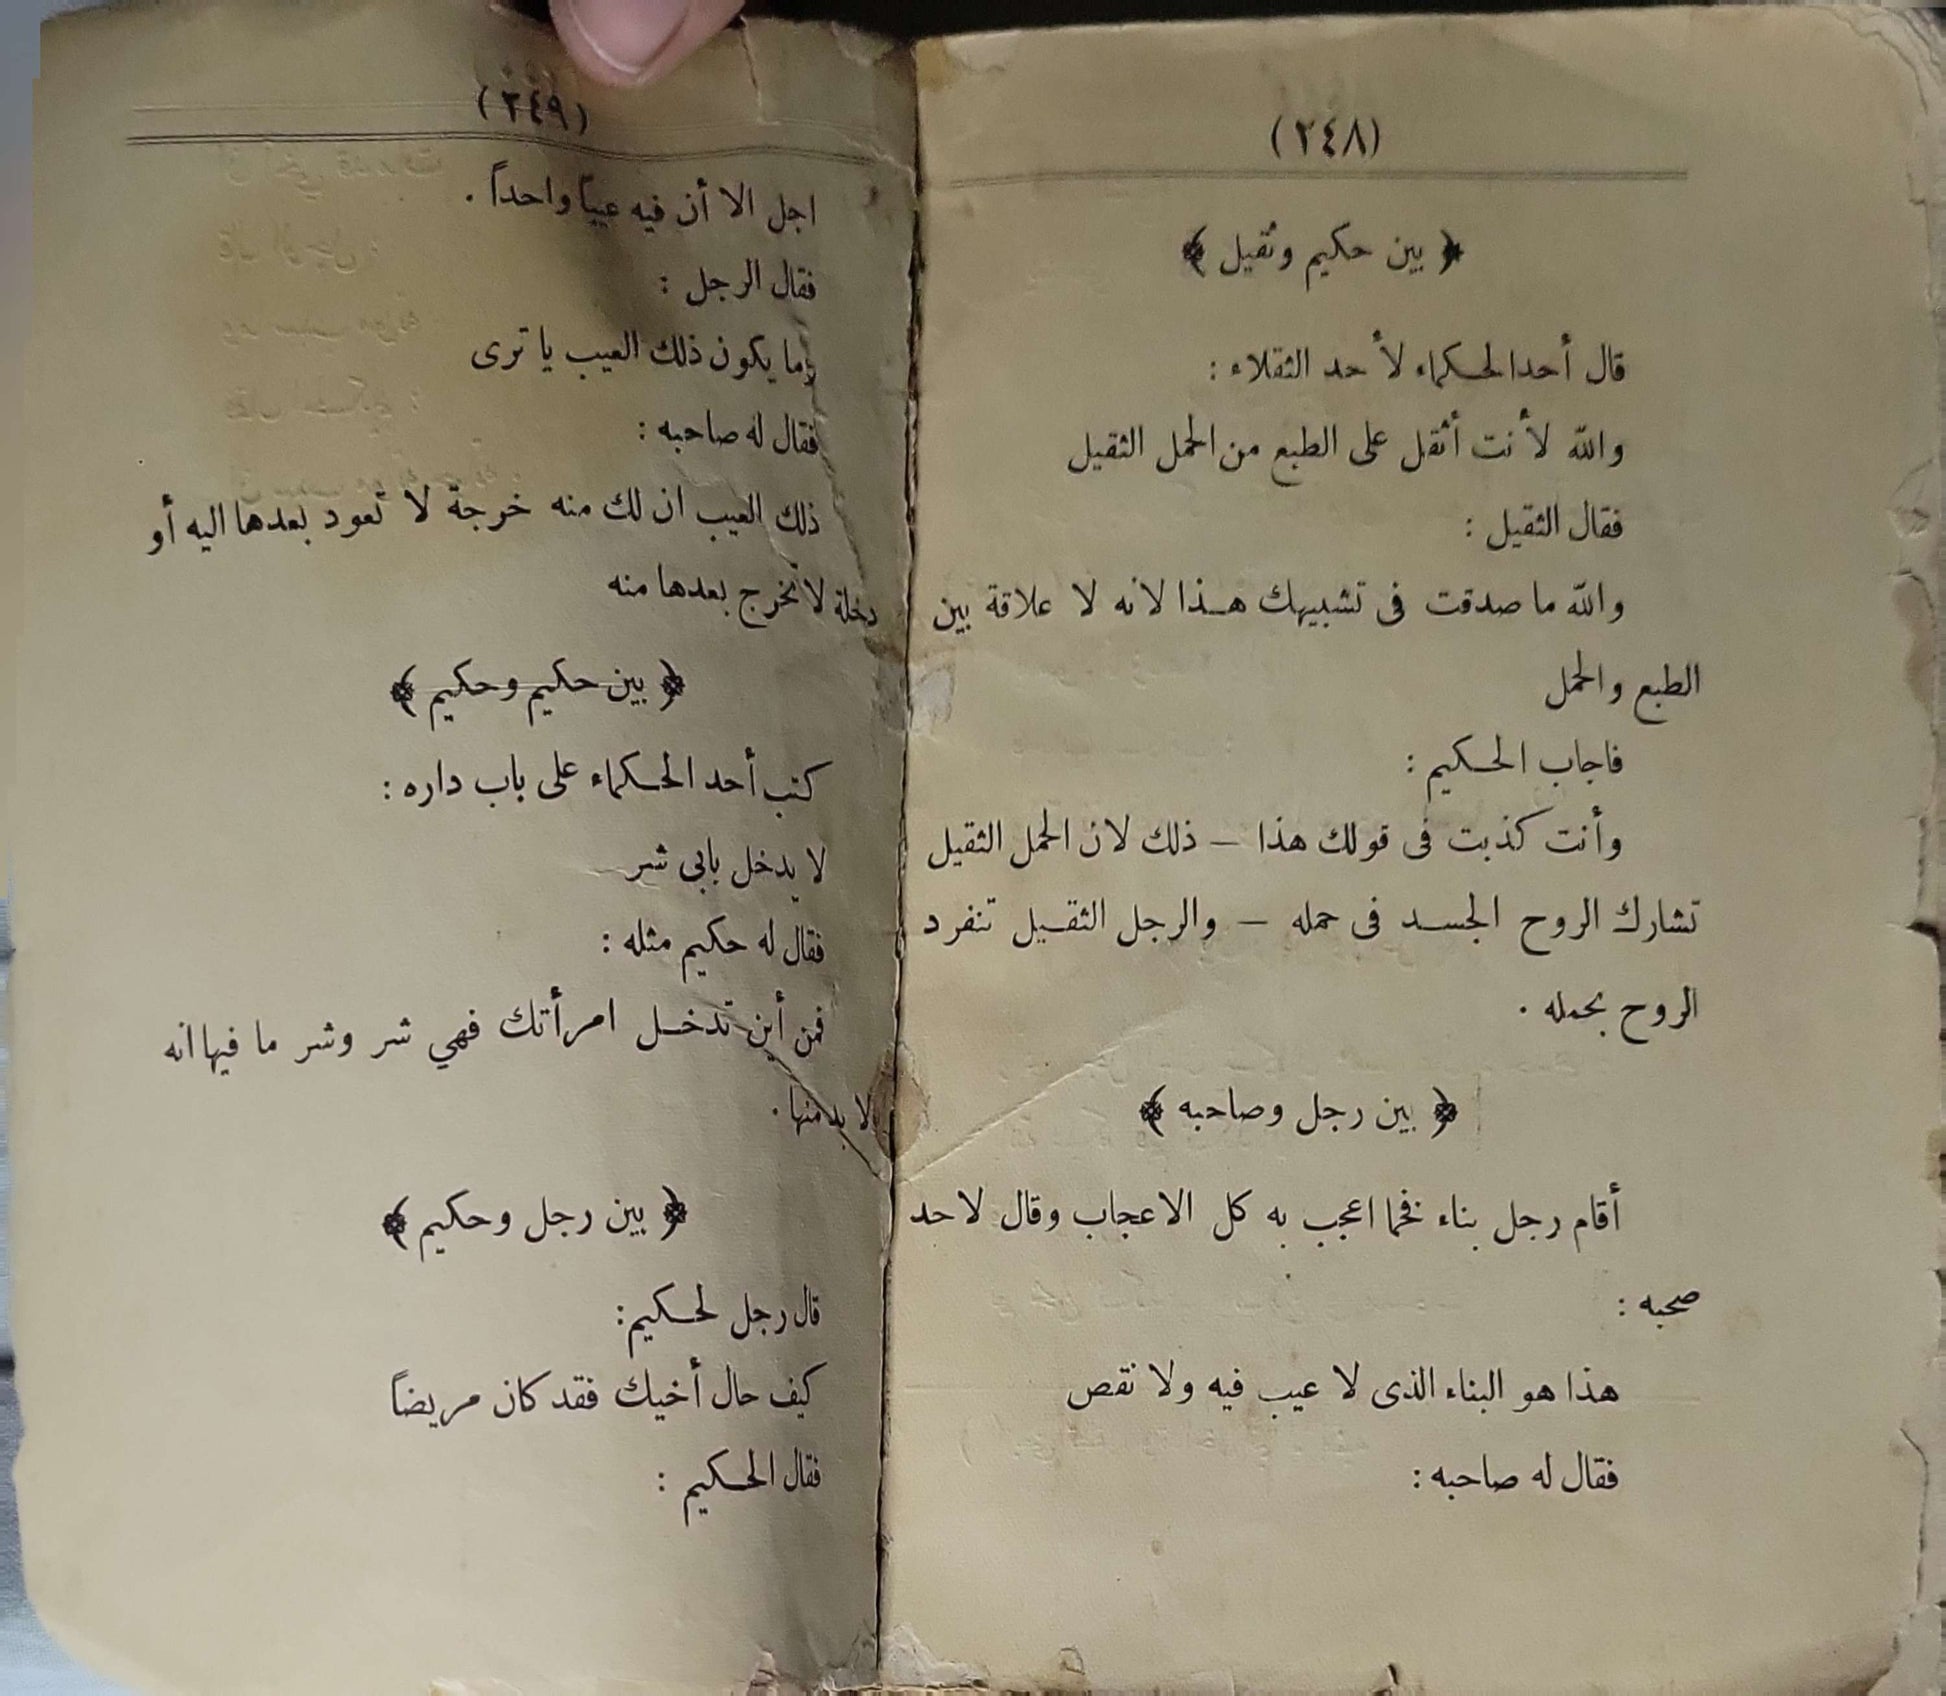 (٢٤٨)
﴿ بين حكيم وثقيل ﴾
قال أحد الحكماء لأحد الثقلاء :
والله لأنت أثقل على الطبع من الحمل الثقيل
فقال الثقيل :
والله ما صدقت فى تشبيهك هذا لانه لا علاقة بين
الطبع والحمل
فاجاب الحكيم :
وأنت كذبت فى قولك هذا — ذلك لان الحمل الثقيل
تشارك الروح الجسد فى حمله — والرجل الثقيل تنفرد
الروح بحمله .
﴿ بين رجل وصاحبه ﴾
أقام رجل بناء فخما اعجب به كل الاعجاب وقال لاحد
صحبه :
هذا هو البناء الذى لا عيب فيه ولا نقص
فقال له صاحبه :
(٢٤٩)
اجل الا أن فيه عيباً واحداً .
فقال الرجل :
وما يكون ذلك العيب يا ترى
فقال له صاحبه :
ذلك العيب ان لك منه خرجة لا تعود بعدها اليه أو
دخلة لا تخرج بعدها منه
﴿ بين حكيم وحكيم ﴾
كتب أحد الحكماء على باب داره :
لا يدخل بابى شر
فقال له حكيم مثله :
فمن أين تدخل امرأتك فهي شر وشر ما فيها انه
لا بد منها .
﴿ بين رجل وحكيم ﴾
قال رجل لحكيم :
كيف حال أخيك فقد كان مريضاً
فقال الحكيم :